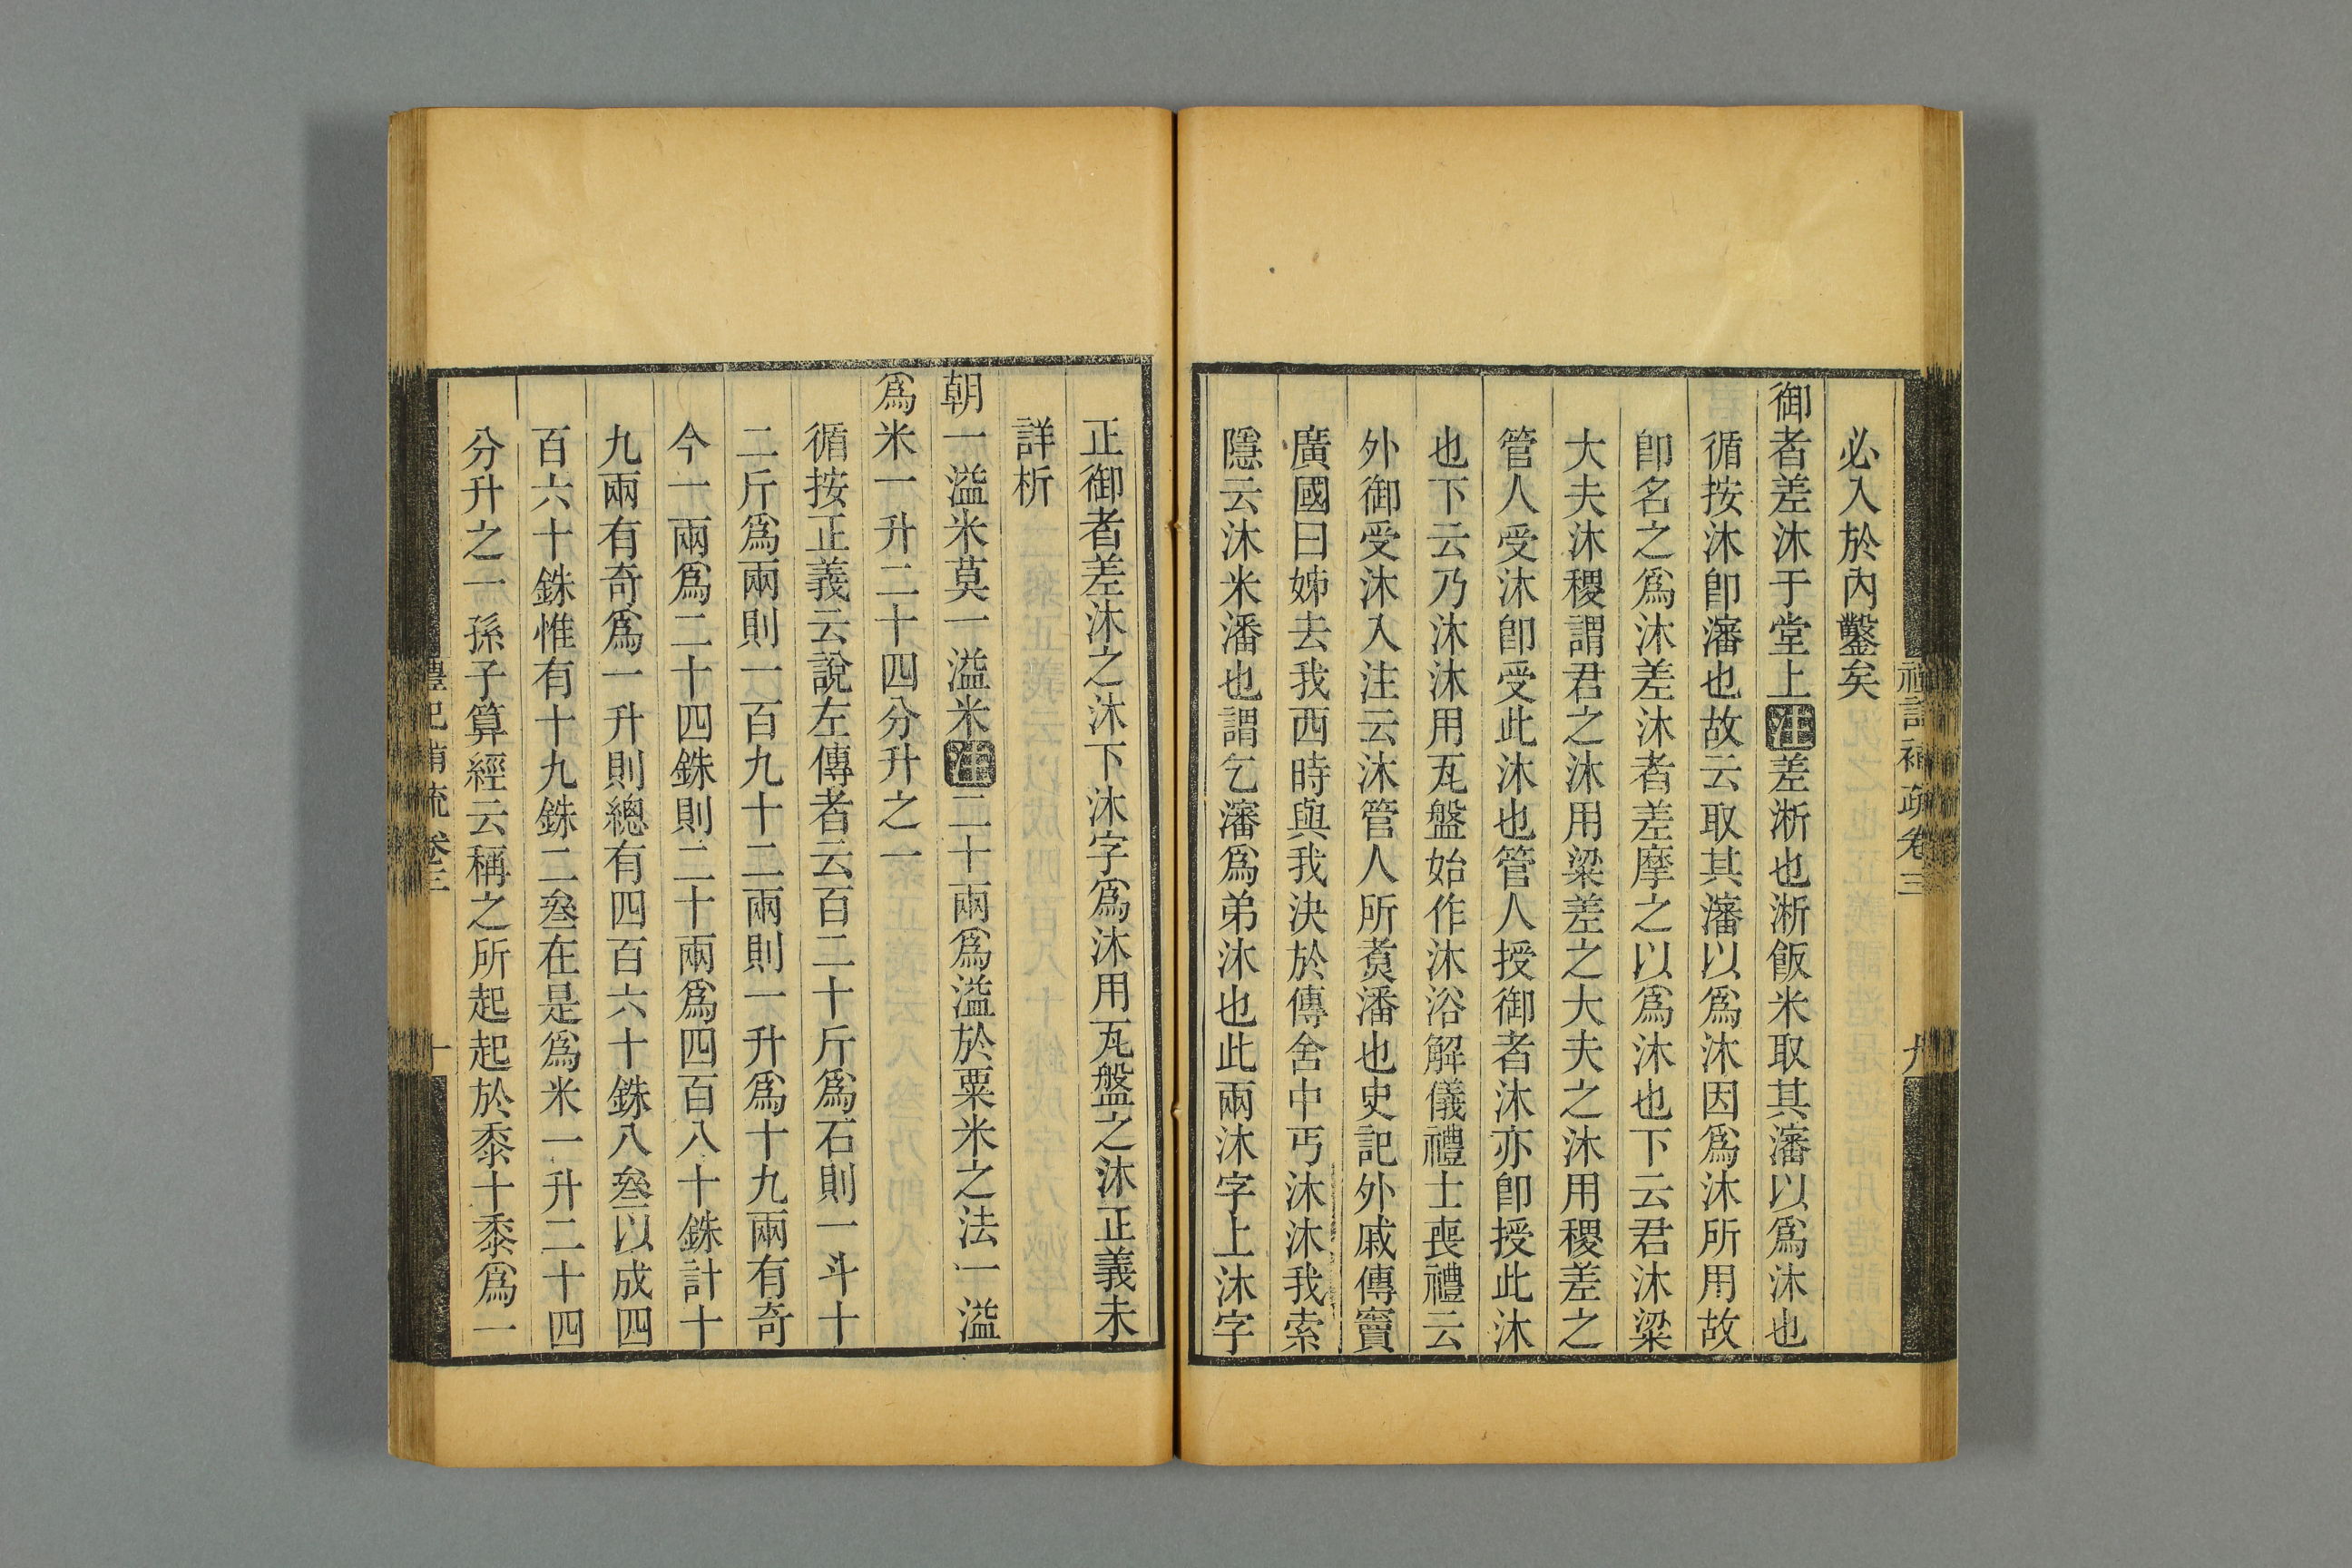 必入於內鑿矣
御者差沐于堂上注差淅也淅飯米取其瀋以爲沐也
循按沐卽瀋也故云取其瀋以爲沐因爲沐所用故
卽名之爲沐差沐者差摩之以爲沐也下云君沐粱
大夫沐稷謂君之沐用粱差之大夫之沐用稷差之
管人受沐卽受此沐也管人授御者沐亦卽授此沐
也下云乃沐沐用瓦盤始作沐浴解儀禮士喪禮云
外御受沐入注云沐管人所煑潘也史記外戚傳竇
廣國曰姊去我西時與我決於傳舍中丐沐沐我索
隱云沐米潘也謂乞瀋爲弟沐也此兩沐字上沐字
禮記補疏卷三
九
正御者差沐之沐下沐字爲沐用瓦盤之沐正義未
詳析
朝一溢米莫一溢米注二十兩爲溢於粟米之法一溢
爲米一升二十四分升之一
循按正義云說左傳者云百二十斤爲石則一斗十
二斤爲兩則一百九十二兩則一升爲十九兩有奇
今一兩爲二十四銖則二十兩爲四百八十銖計十
九兩有奇爲一升則總有四百六十銖八絫以成四
百六十銖惟有十九銖二絫在是爲米一升二十四
分升之一孫子算經云稱之所起起於黍十黍爲一
禮記補疏卷三
十